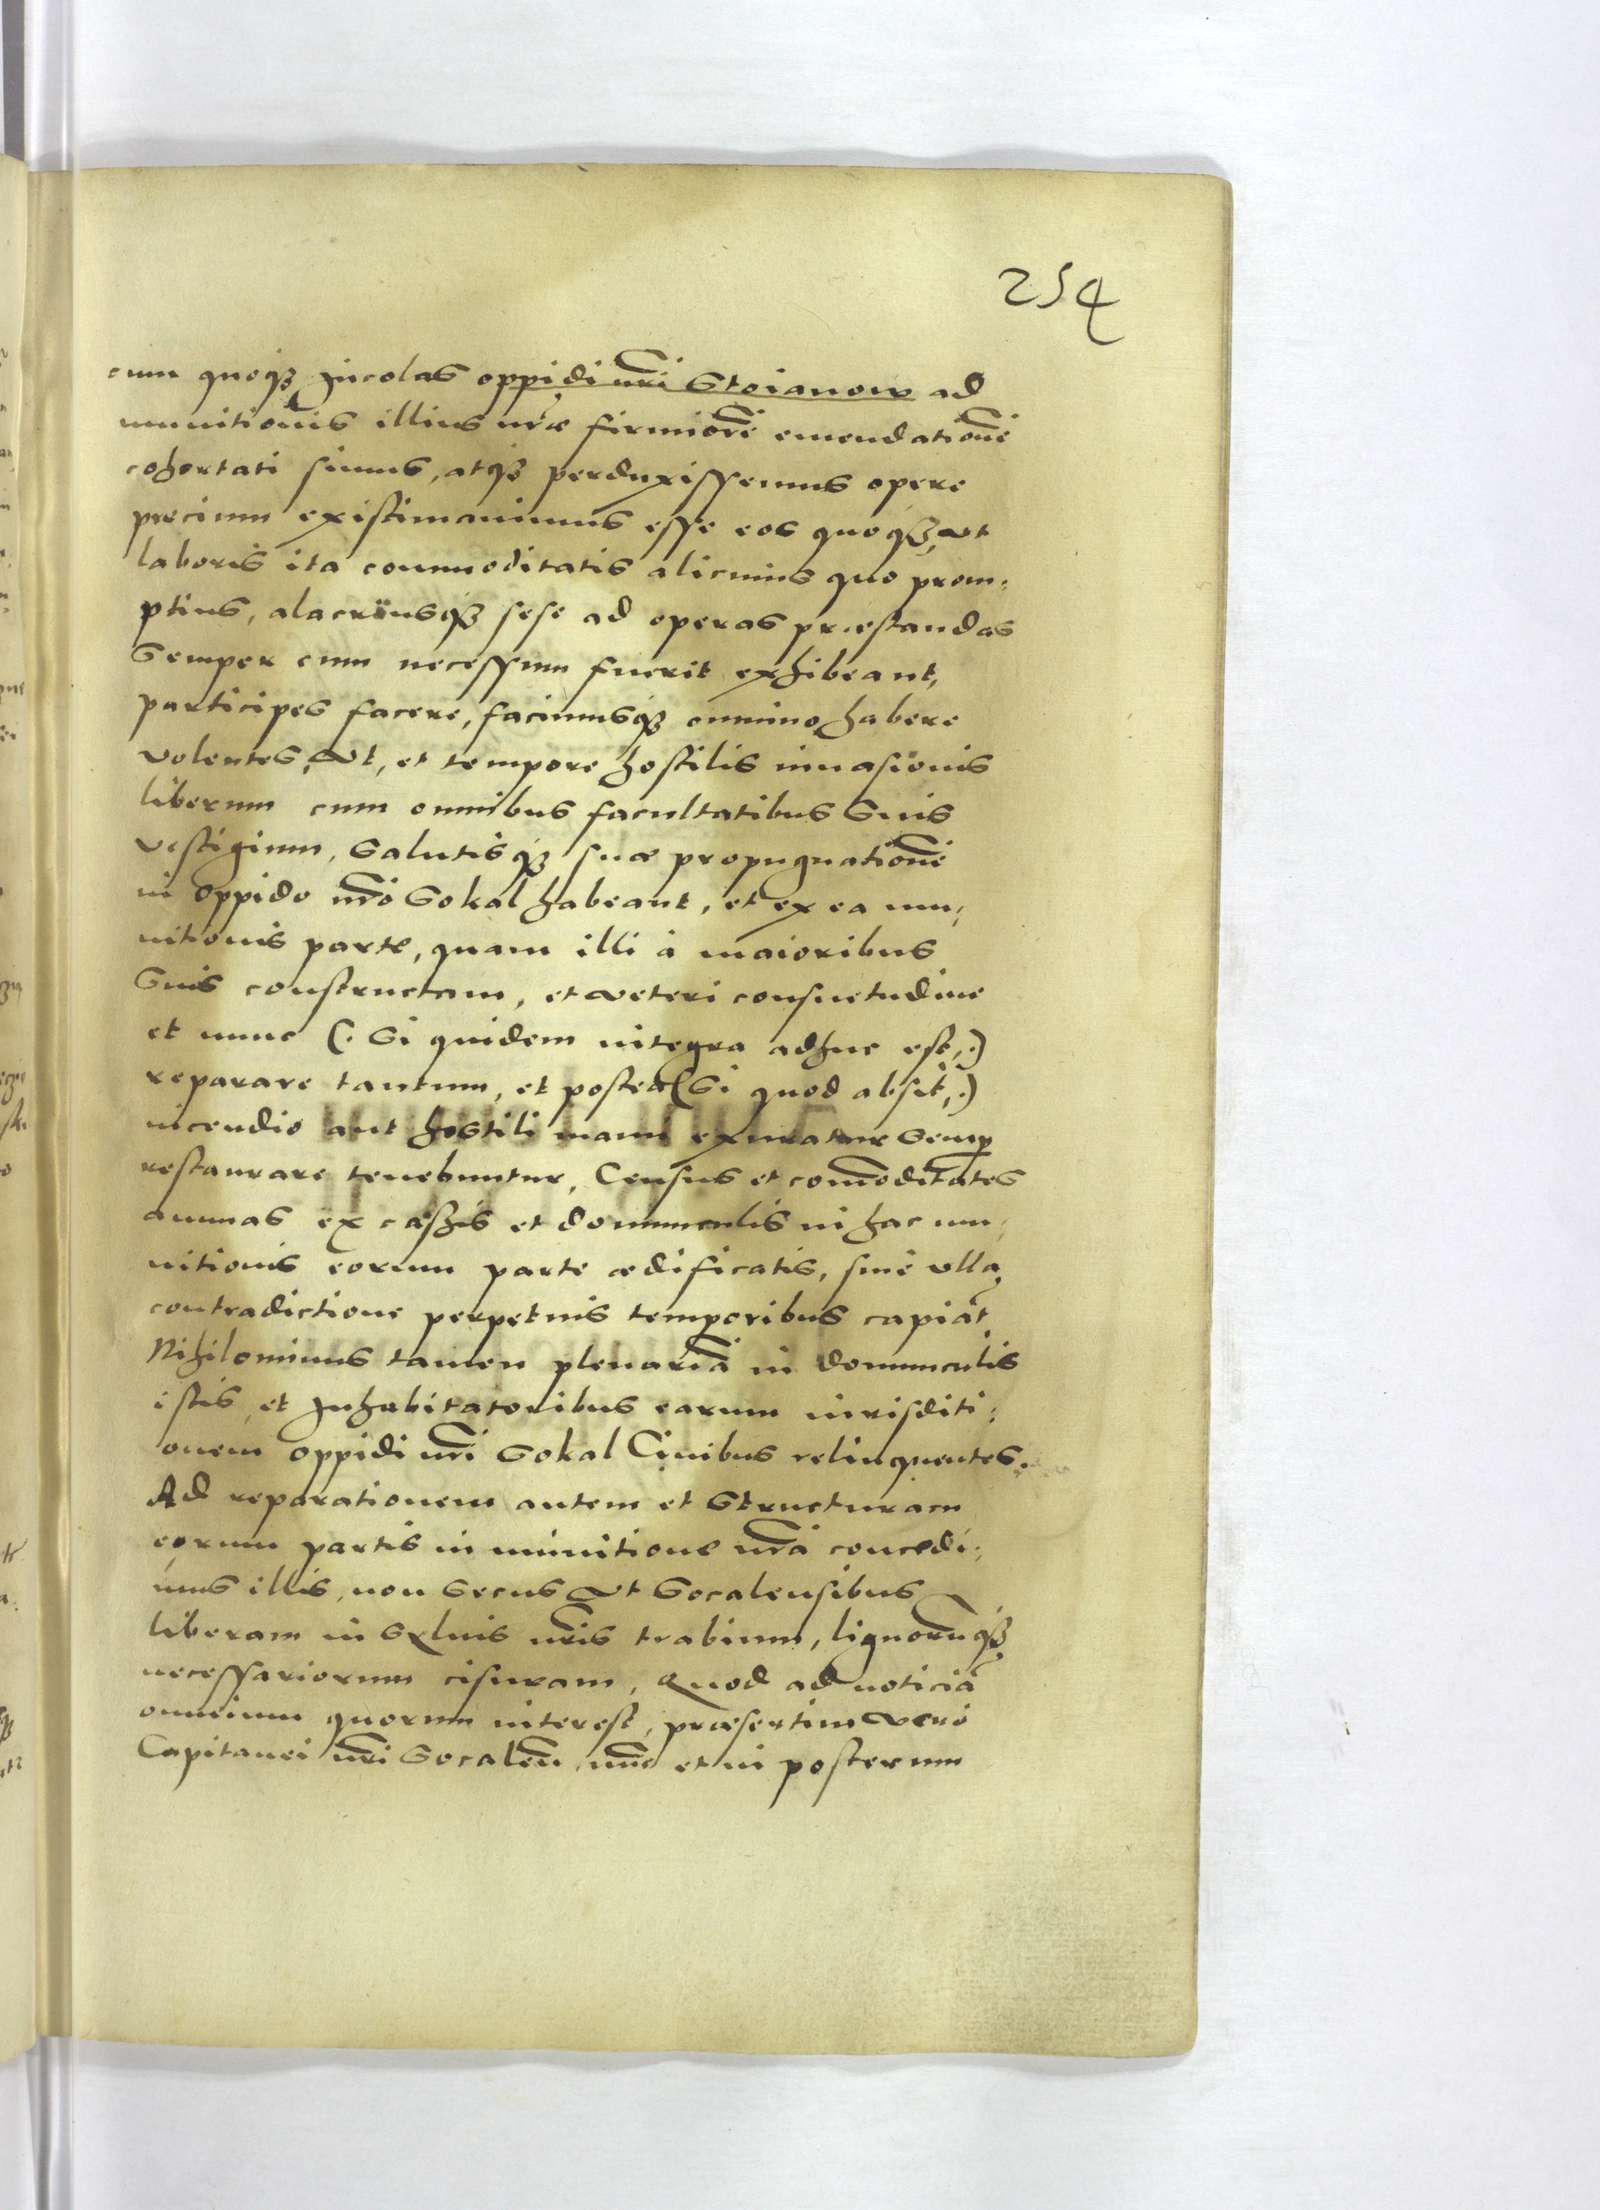 254
cum quoq₃ Incolas oppidi nr̃i Stoianow ad
munitionis illius nr̃æ firmiorẽ emendationẽ
cohortati simus, atq₃ perduxissemus opere
precium existimauimus esse eos quoq₃, vt
laboris ita commoditatis alicuius quo prom:
ptius, alacriusq₃ sese ad operas præstandas
Semper cum necessum fuerit exhibeant,
participes facere, facimusq₃ omnino habere
volentes, Vt, et tempore hostilis inuasionis
liberum cum omnibus facultatibus Suis
vestigium, Salutisq₃ suæ propugnationẽ
in Oppido nr̃o Sokal habeant, et ex ea mu,
nitionis parte, quam illi à maioribus
Suis constructam, et veteri consuetudine
et nunc (. Si quidem integra adhuc est,.)
reparare tantum, et postea (Si quod absit,.)
incendio aut hostili manu exuratur Semp̱
restaurare tenebuntur, Census et com̃oditates
annuas ex casis et domunculis in hac mu,
nitionis eorum parte ædificatis, sine vlla
contradictione perpetuis temporibus capiãt,
Nihilominus tamen plenariã in domunculis
istis, et Inhabitatoribus earum iurisditi:
onem oppidi nr̃i Sokal Ciuibus relinquentes.
Ad reparationem autem et Structuram
eorum partis in munitione nr̃a concedi:
mus illis, non Secus Vt Socalensibus
liberam in Syluis nr̃is trabium, lignorũq₃
necessariorum cisuram, Quod ad noticiã
omnium quorum interest, præsertim vero
Capitanei nr̃i Socaleñ, nũc et in posterum